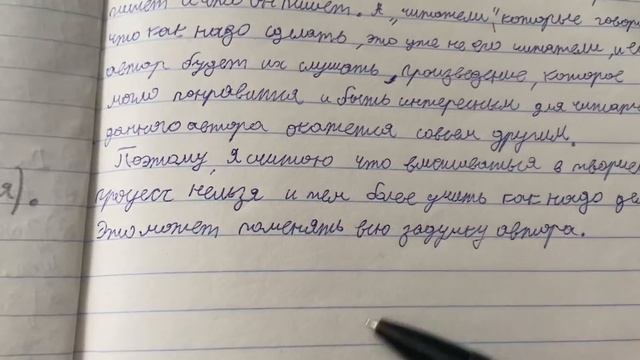 пишет и чём он пишет. А "читатели", которые говор
что как надо сделать, это уже не его читатели, и е
автор будет их слушать, произведение, которое
могло понравится и быть интересным для читат
данного автора окажется совсем другим.
Поэтому, я считаю что вмешиваться в творче
процесс нельзя и тем более учить как надо де
Это может поменять всю задумку автора.
я).